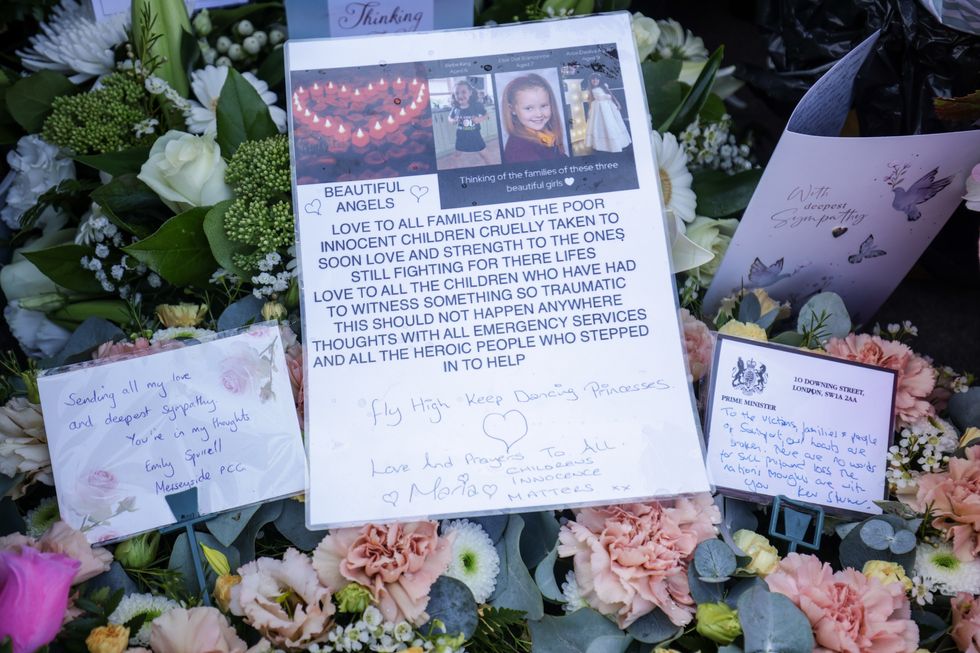 Thinking
Bebe King
Aged 6
Elsie Dot Stancombe
Aged 7
Thinking of the families of these three
beautiful girls
BEAUTIFUL
ANGELS
LOVE TO ALL FAMILIES AND THE POOR
INNOCENT CHILDREN CRUELLY TAKEN TO
SOON LOVE AND STRENGTH TO THE ONES
STILL FIGHTING FOR THERE LIFES
LOVE TO ALL THE CHILDREN WHO HAVE HAD
TO WITNESS SOMETHING SO TRAUMATIC
THIS SHOULD NOT HAPPEN ANYWHERE
THOUGHTS WITH ALL EMERGENCY SERVICES
AND ALL THE HEROIC PEOPLE WHO STEPPED
IN TO HELP
Fly High Keep Dancing Princesses
Love And Prayers To All.
Maria
CHILDRENS
INNOCENCE
MATTERS xx
With
deepest
Sympathy
Sending all my love
and deepest sympathy
You're in my thoughts
Emily Spurrell
Merseyside PCC
10 DOWNING STREET,
LONDON, SW1A 2AA
PRIME MINISTER
To the victims, families & people
of Southport, our hearts are
broken. There are no words
for such profound loss. The
nations thoughts are with
you Keir Starmer